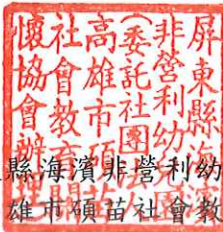 屏東縣海濱
非營利幼兒園
(委託社團法人
高雄市碩苗
社會教育關
懷協會辦理)
縣海濱非營利幼
雄市碩苗社會教